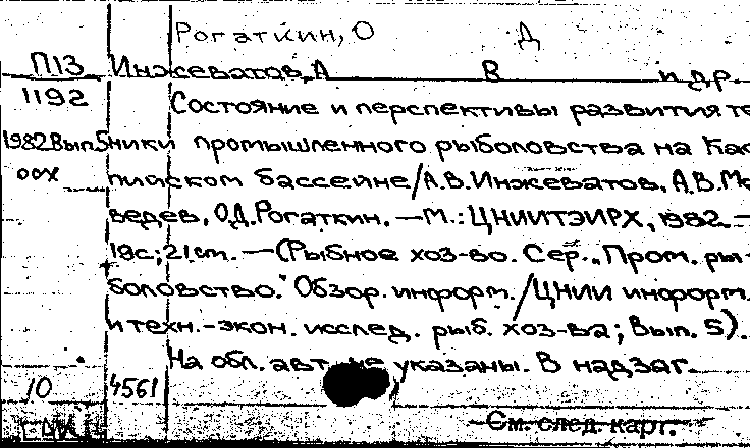 Рогаткин, О Д
П13 Инжеватов, А В и др.
1192 Состояние и перспективы развития те
1982 Вып.5 ники промышленного рыболовства на Кас
оох пийском бассейне/А.В.Инжеватов, А.В.Ме
ведев, О.Д.Рогаткин. —М.: ЦНИИТЭИРХ, 1982.—
19с; 21см. —(Рыбное хоз-во. Сер. „Пром. ры-
боловство." Обзор. информ./ЦНИИ информ.
и техн.-экон. исслед. рыб. хоз-ва; Вып. 5).
На обл. авт. не указаны. В надзаг.
10 4561
См. след. карт.